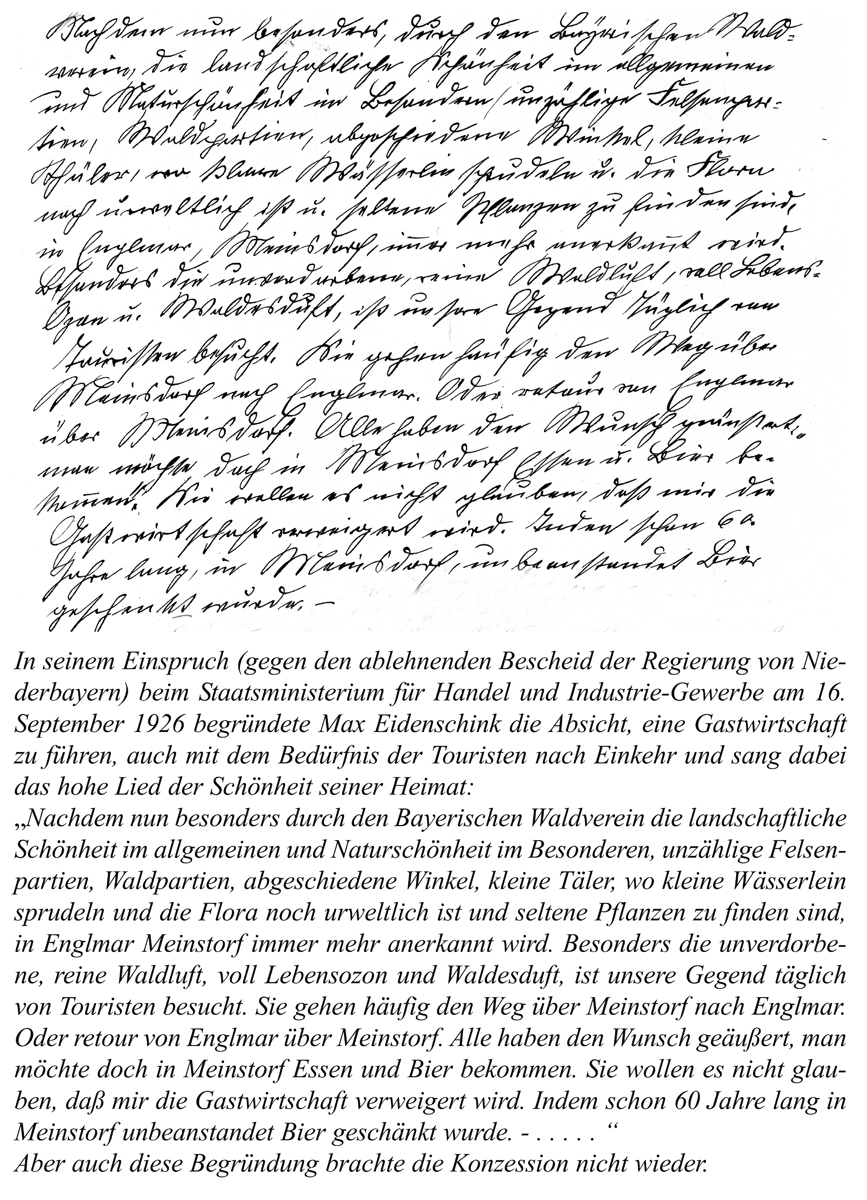 Nachdem nun besonders, durch den Bayrischen Wald-
verein, die landschaftliche Schönheit im allgemeinen
und Naturschönheit im Besondern/unzählige Felsenpar-
tien, Waldpartien, abgeschiedene Winkel, kleine
Thäler, wo klare Wässerlein sprudeln u. die Flora
noch urweltlich ist u. seltene Pflanzen zu finden sind,
in Englmar, Meinsdorf, immer mehr anerkannt wird.
Besonders die unverdorbene, reine Waldluft, voll Lebens-
Ozon u. Waldesduft, ist unsere Gegend täglich von
Touristen besucht. Sie gehen häufig den Weg über
Meinsdorf nach Englmar. Oder retour von Englmar
über Meinsdorf. Alle haben den Wunsch geäußert: „
man möchte doch in Meinsdorf Essen u. Bier be-
kommen". Sie wollen es nicht glauben, daß mir die
Gastwirtschaft verweigert wird. Inden schon 60.
Jahre lang, in Meinsdorf, unbeanstandet Bier
geschenkt wurde. —
In seinem Einspruch (gegen den ablehnenden Bescheid der Regierung von Nie-
derbayern) beim Staatsministerium für Handel und Industrie-Gewerbe am 16.
September 1926 begründete Max Eidenschink die Absicht, eine Gastwirtschaft
zu führen, auch mit dem Bedürfnis der Touristen nach Einkehr und sang dabei
das hohe Lied der Schönheit seiner Heimat:
„Nachdem nun besonders durch den Bayerischen Waldverein die landschaftliche
Schönheit im allgemeinen und Naturschönheit im Besonderen, unzählige Felsen-
partien, Waldpartien, abgeschiedene Winkel, kleine Täler, wo kleine Wässerlein
sprudeln und die Flora noch urweltlich ist und seltene Pflanzen zu finden sind,
in Englmar Meinstorf immer mehr anerkannt wird. Besonders die unverdorbe-
ne, reine Waldluft, voll Lebensozon und Waldesduft, ist unsere Gegend täglich
von Touristen besucht. Sie gehen häufig den Weg über Meinstorf nach Englmar.
Oder retour von Englmar über Meinstorf. Alle haben den Wunsch geäußert, man
möchte doch in Meinstorf Essen und Bier bekommen. Sie wollen es nicht glau-
ben, daß mir die Gastwirtschaft verweigert wird. Indem schon 60 Jahre lang in
Meinstorf unbeanstandet Bier geschänkt wurde. - . . . . . “
Aber auch diese Begründung brachte die Konzession nicht wieder.